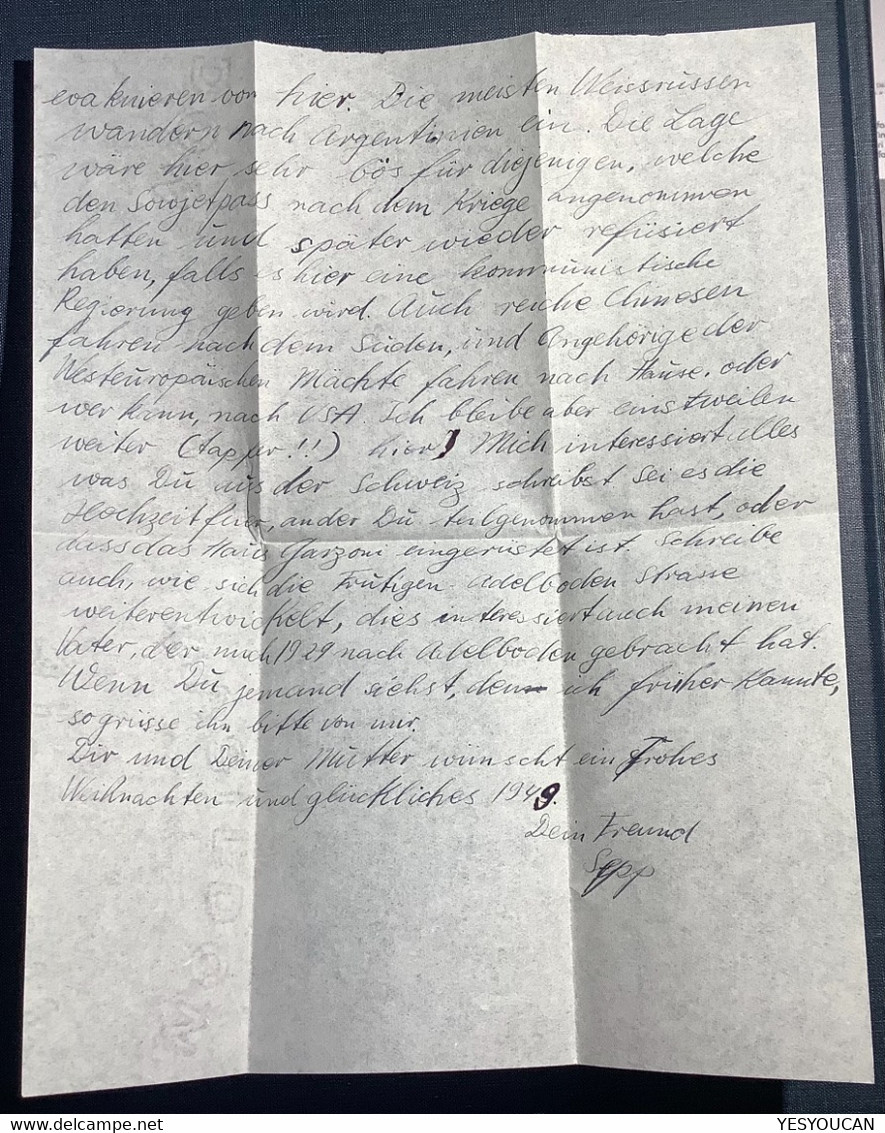 evakuieren von hier. Die meisten Weissrussen
wandern nach Argentinien ein. Die Lage
wäre hier sehr bös für diejenigen, welche
den Sowjetpass nach dem Kriege angenommen
hatten und später wieder refüsiert
haben, falls es hier eine kommunistische
Regierung geben wird. Auch reiche Chinesen
fahren nach dem Süden, und Angehörige der
Westeuropäischen Mächte fahren nach Hause, oder
wer kann, nach USA. Ich bleibe aber einstweilen
weiter (tapfer!!) hier! Mich interessiert alles
was Du aus der Schweiz schreibst sei es die
Hochzeitfeier, an der Du teilgenommen hast, oder
dass das Haus Garzoni eingerüstet ist. Schreibe
auch, wie sich die Frutigen-Adelboden Strasse
weiterentwickelt, dies interessiert auch meinen
Vater, der mich 1929 nach Adelboden gebracht hat.
Wenn Du jemand siehst, den ich früher kannte,
so grüsse ihn bitte von mir.
Dir und Deiner Mutter wünscht ein Frohes
Weihnachten und glückliches 1949.
Dein Freund
Sepp
WWW.DELCAMPE.NET
YESYOUCAN